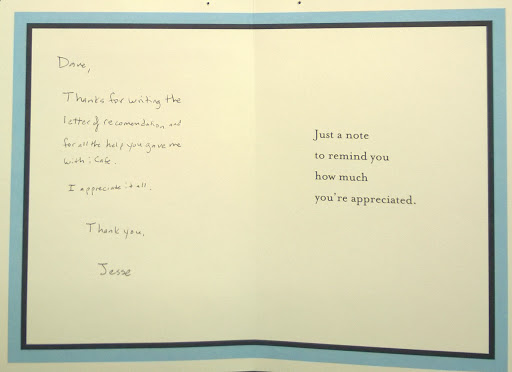 Dave,
Thanks for writing the
letter of recomendation and
for all the help you gave me
with iCafe.
I appreciate it all.
Thank you,
Jesse
Just a note
to remind you
how much
you're appreciated.